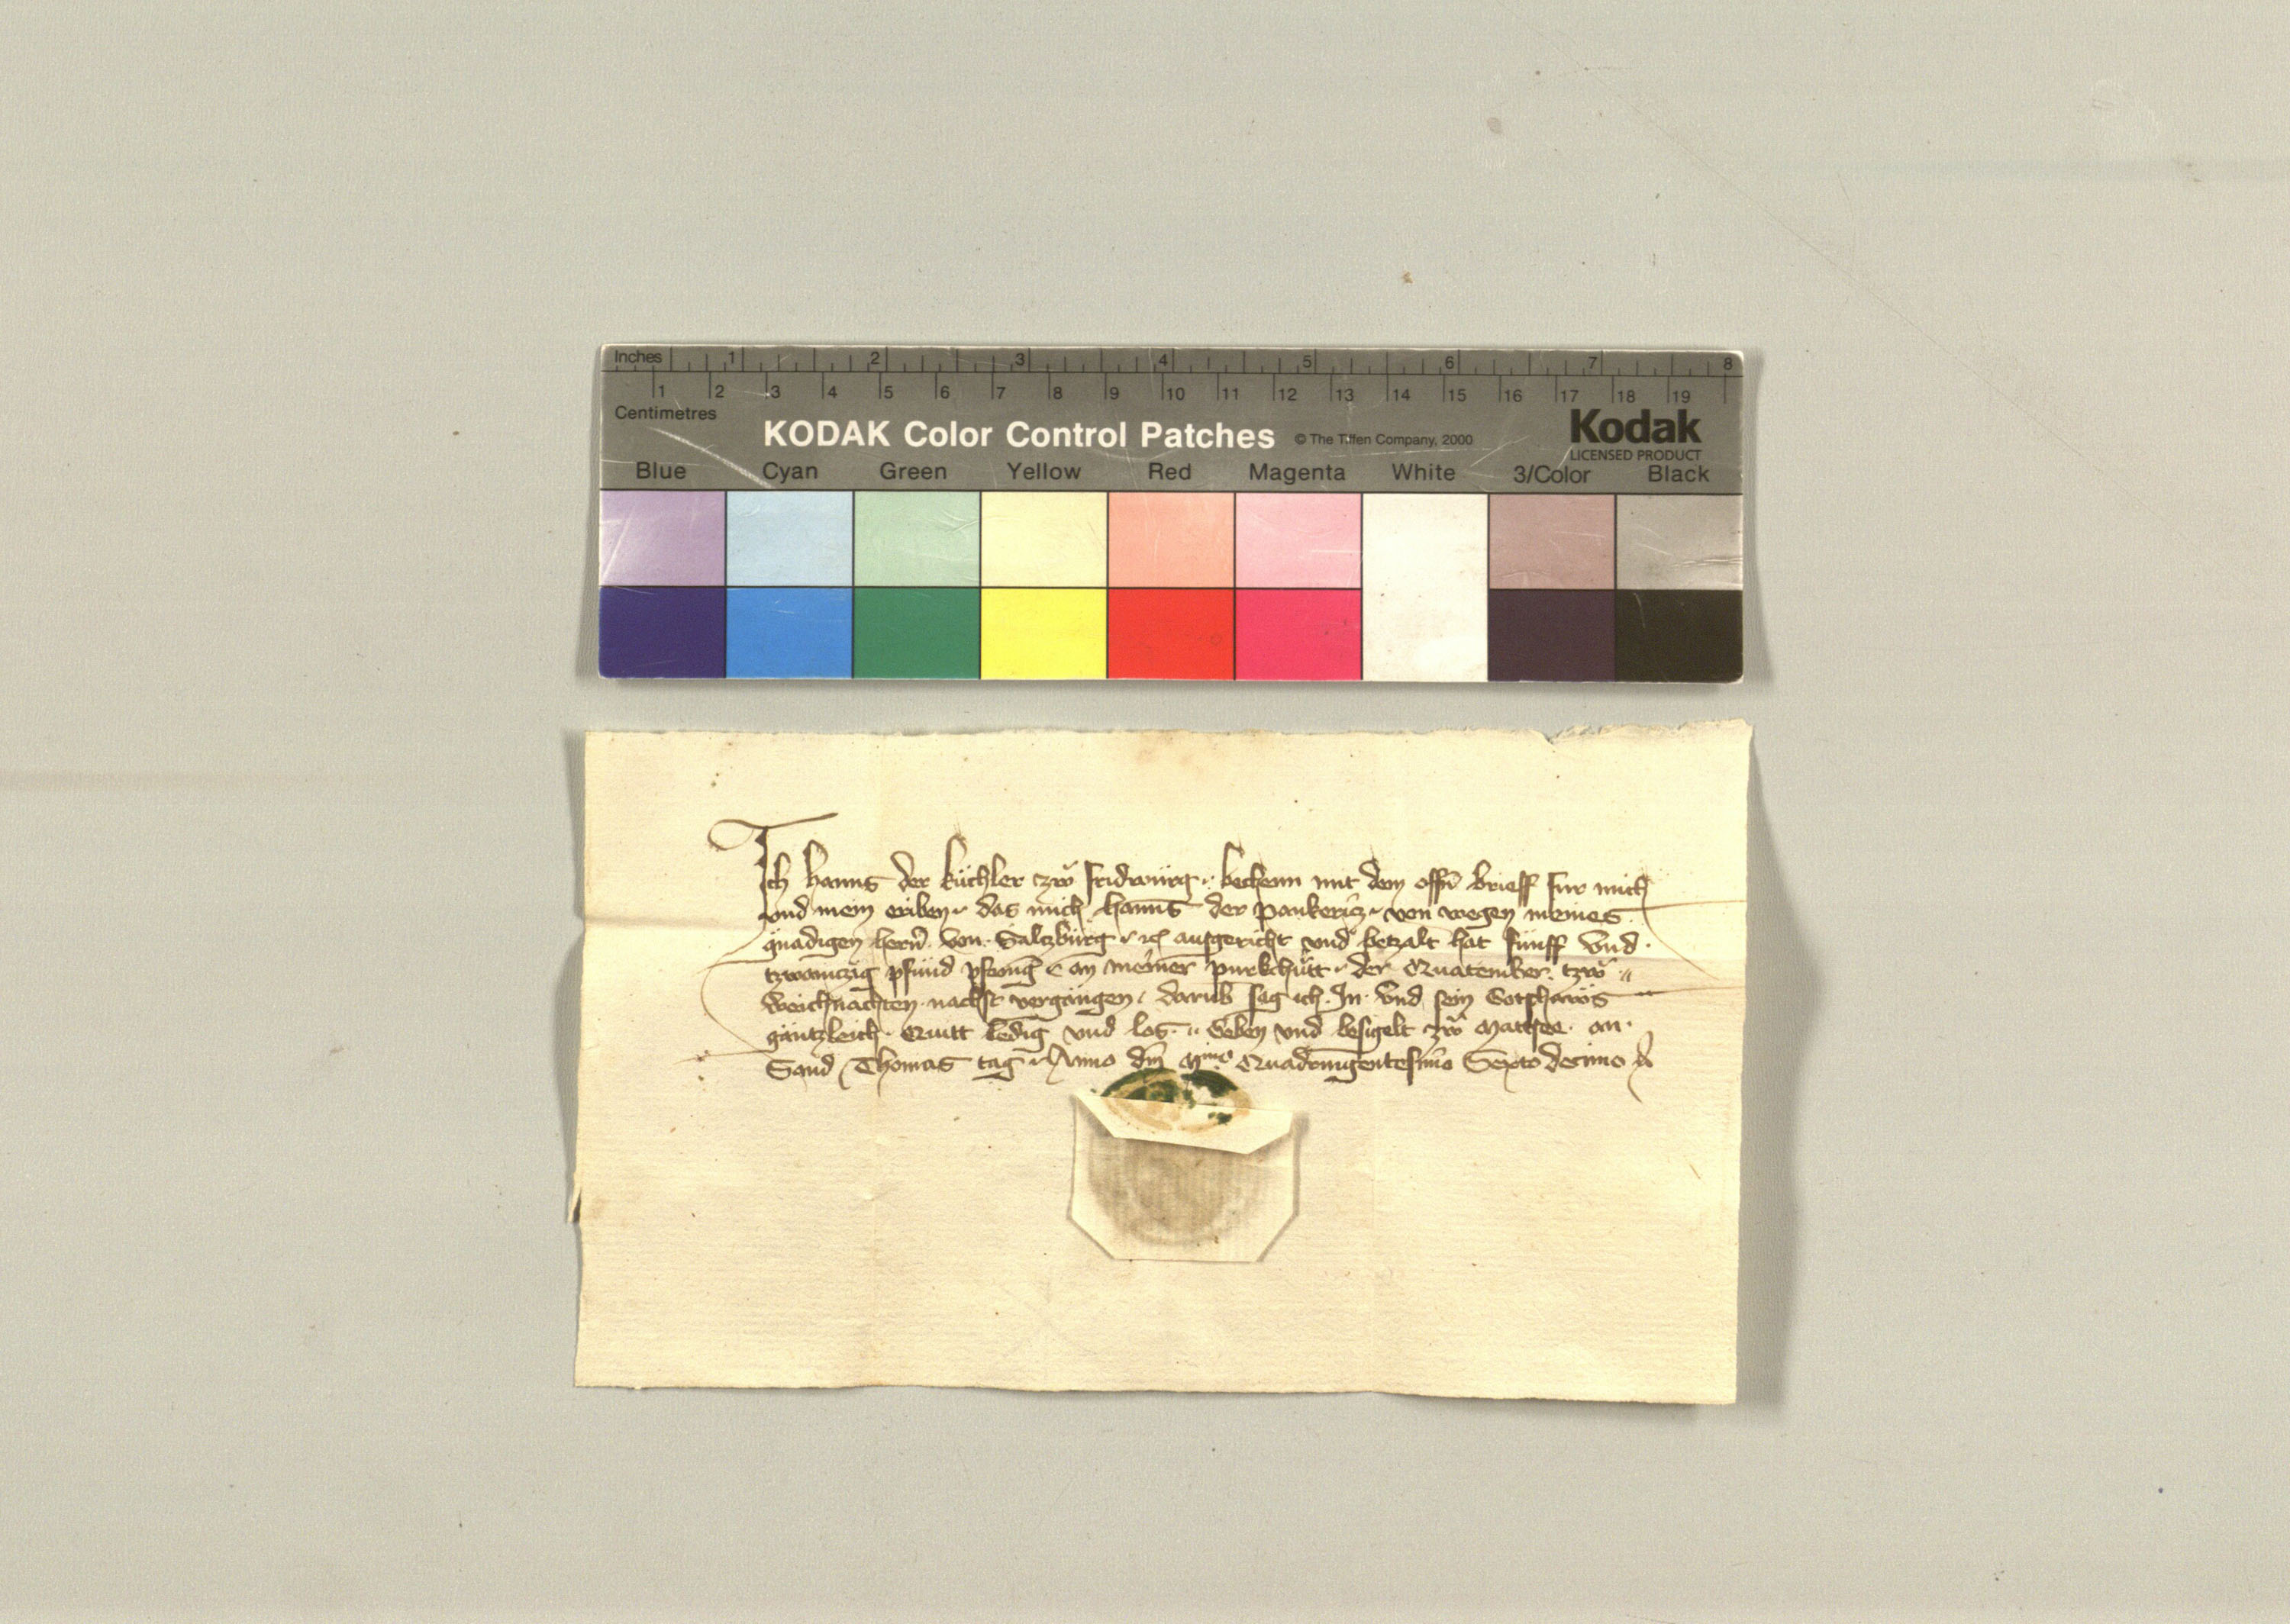 Inches 1 2 3 4 5 6 7 8
1 2 3 4 5 6 7 8 9 10 11 12 13 14 15 16 17 18 19
Centimetres
KODAK Color Control Patches © The Tiffen Company, 2000 Kodak
LICENSED PRODUCT
Blue Cyan Green Yellow Red Magenta White 3/Color Black
Ich Hanns der Küchler zw̋ fridwürg bekenn mit dem offn̄ brieff fur mich
vnd mein eriben das mich Hanns der pankericz von wegen meines
gnadigen hern̄ von Saltzbürg ausgericht vnd betzalt hat fünff vnd
tzwainczig pfund pfenng an meiner purkchütt der Quatember tzw̋
Weichnachten nachst vergangen darub̄ sag ich In vnd sein Gotzhaws
gäntzleich Quitt ledig vnd los Geben vnd besigelt zw̋ Mattsee an
Sand Thomas tag Anno dn̄i Mimo Quadringentesimo Sexto decimo